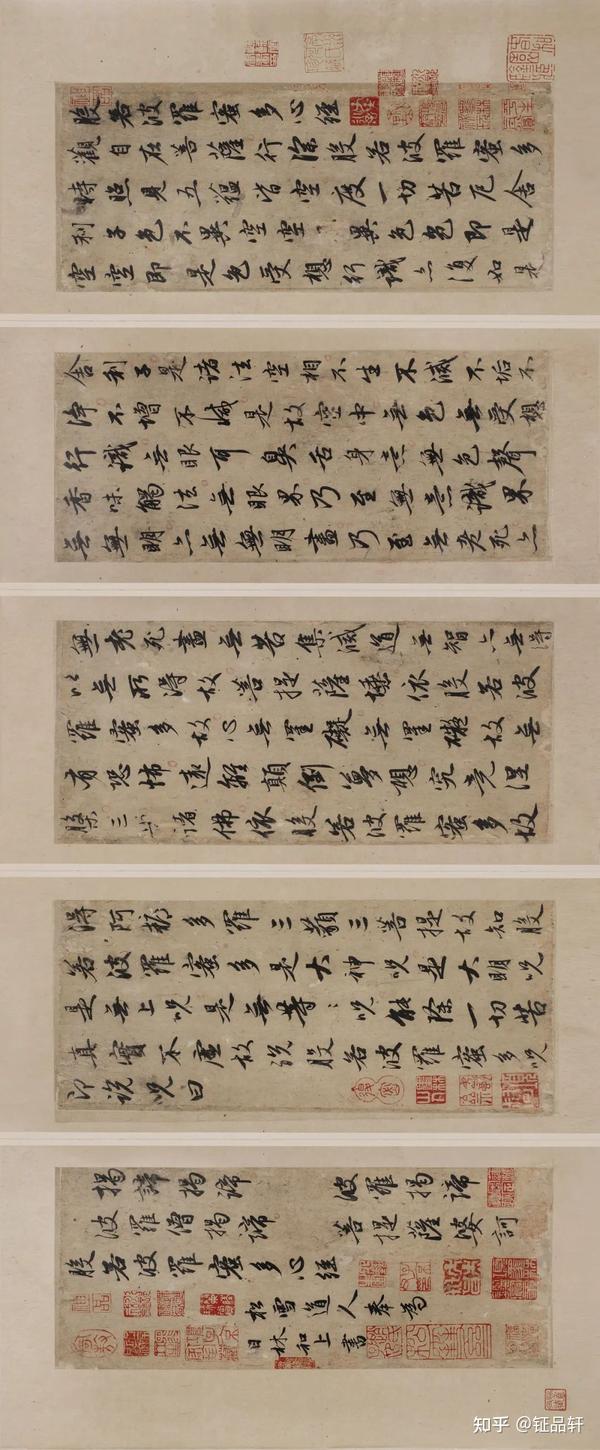 般若波羅蜜多心經
觀自在菩薩行深般若波羅蜜多
時照見五蘊皆空度一切苦厄舍
利子色不異空空異色色即是
空空即是色受想行識亦復如是
舍利子是諸法空相不生不滅不垢不
淨不增不減是故空中無色無受想
行識無眼耳鼻舌身意無色聲
香味觸法無眼界乃至無意識界
無無明亦無無明盡乃至無老死亦
無老死盡無苦集滅道無智亦無得
以無所得故菩提薩埵依般若波
羅蜜多故心無罣礙無罣礙故無
有恐怖遠離顛倒夢想究竟涅
槃三世諸佛依般若波羅蜜多故
得阿耨多羅三藐三菩提故知般
若波羅蜜多是大神咒是大明咒
是無上咒是無等々咒能除一切苦
真實不虛故說般若波羅蜜多咒
即說咒曰
揭諦揭諦 波羅揭諦
波羅僧揭諦 菩提薩婆訶
般若波羅蜜多心經
松雪道人奉為
日林和上書
知乎 @钲品轩